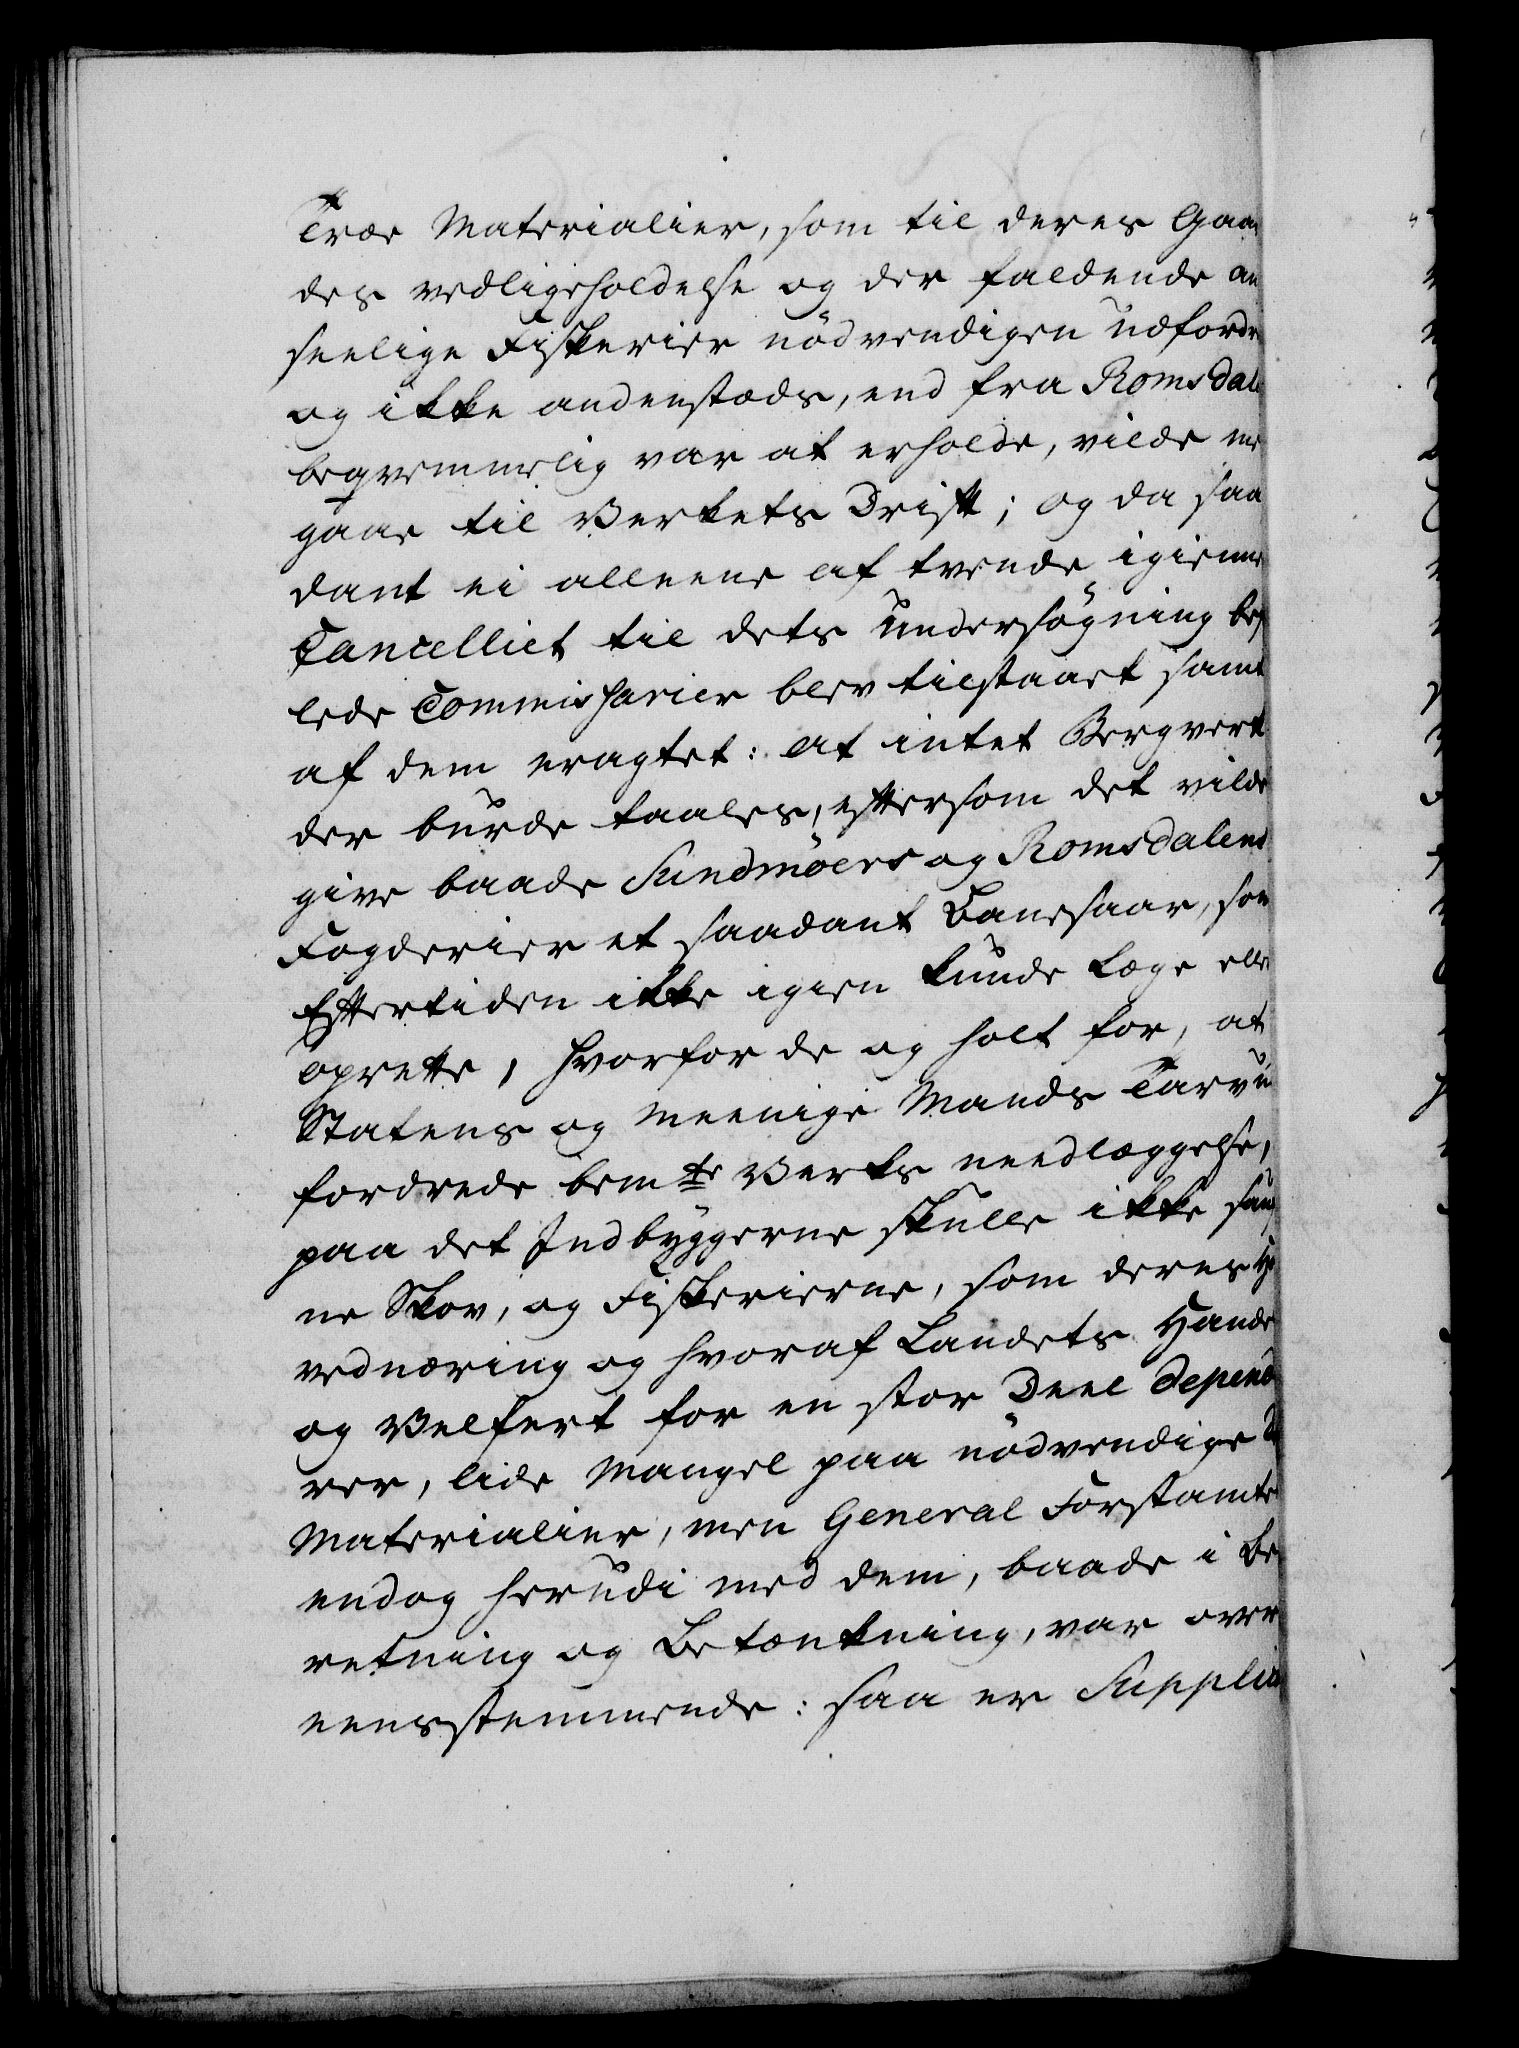 Træe Materialier, som til deres Gaar
des vedligeholdelse og der faldende an
seelige Fiskerier nödvendigen udfordr
og ikke andenstæds, end fra Romsdale
beqvemmelig var at erholde, vilde me
gaae til Verkets Drift; og da saa
dant ei alleene af tvende igienne
Cancelliet til dets undersögning bef
lede Commissarier blev tilstaaet samt
af dem eragtet: at intet Bergverk
der burde taales, eftersom det vilde
give baade Sundmöers og Romsdalens
Fogderier et saadant Banesaar, som
Eftertiden ikke igien kunde læge elle
oprette, hvorfor de og holt for, at
Statens og Meenige Mands Tarv u
fordrede bemte Verks needlæggelse,
paa det Indbyggerne skulle ikke sav
ne Skov, og Fiskerierne, som deres Ho
vednæring og hvoraf Landets Hande
og Velfert for en stor Deel depend
rer, lide Mangel paa nödvendige
Materialier, men General Forstamte
endog herudi med dem, baade i Be
retning og Betænkning, var over
eensstemmende: saa er Supplic